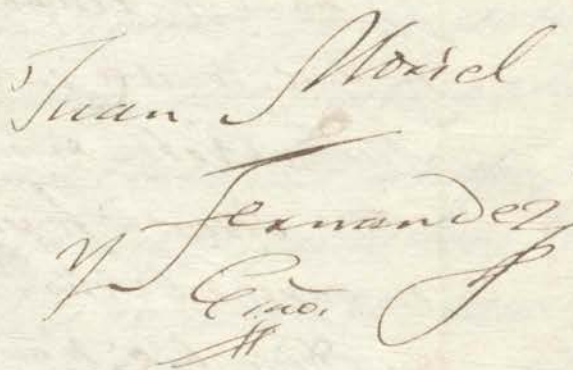 Juan Moriel
y Fernandez